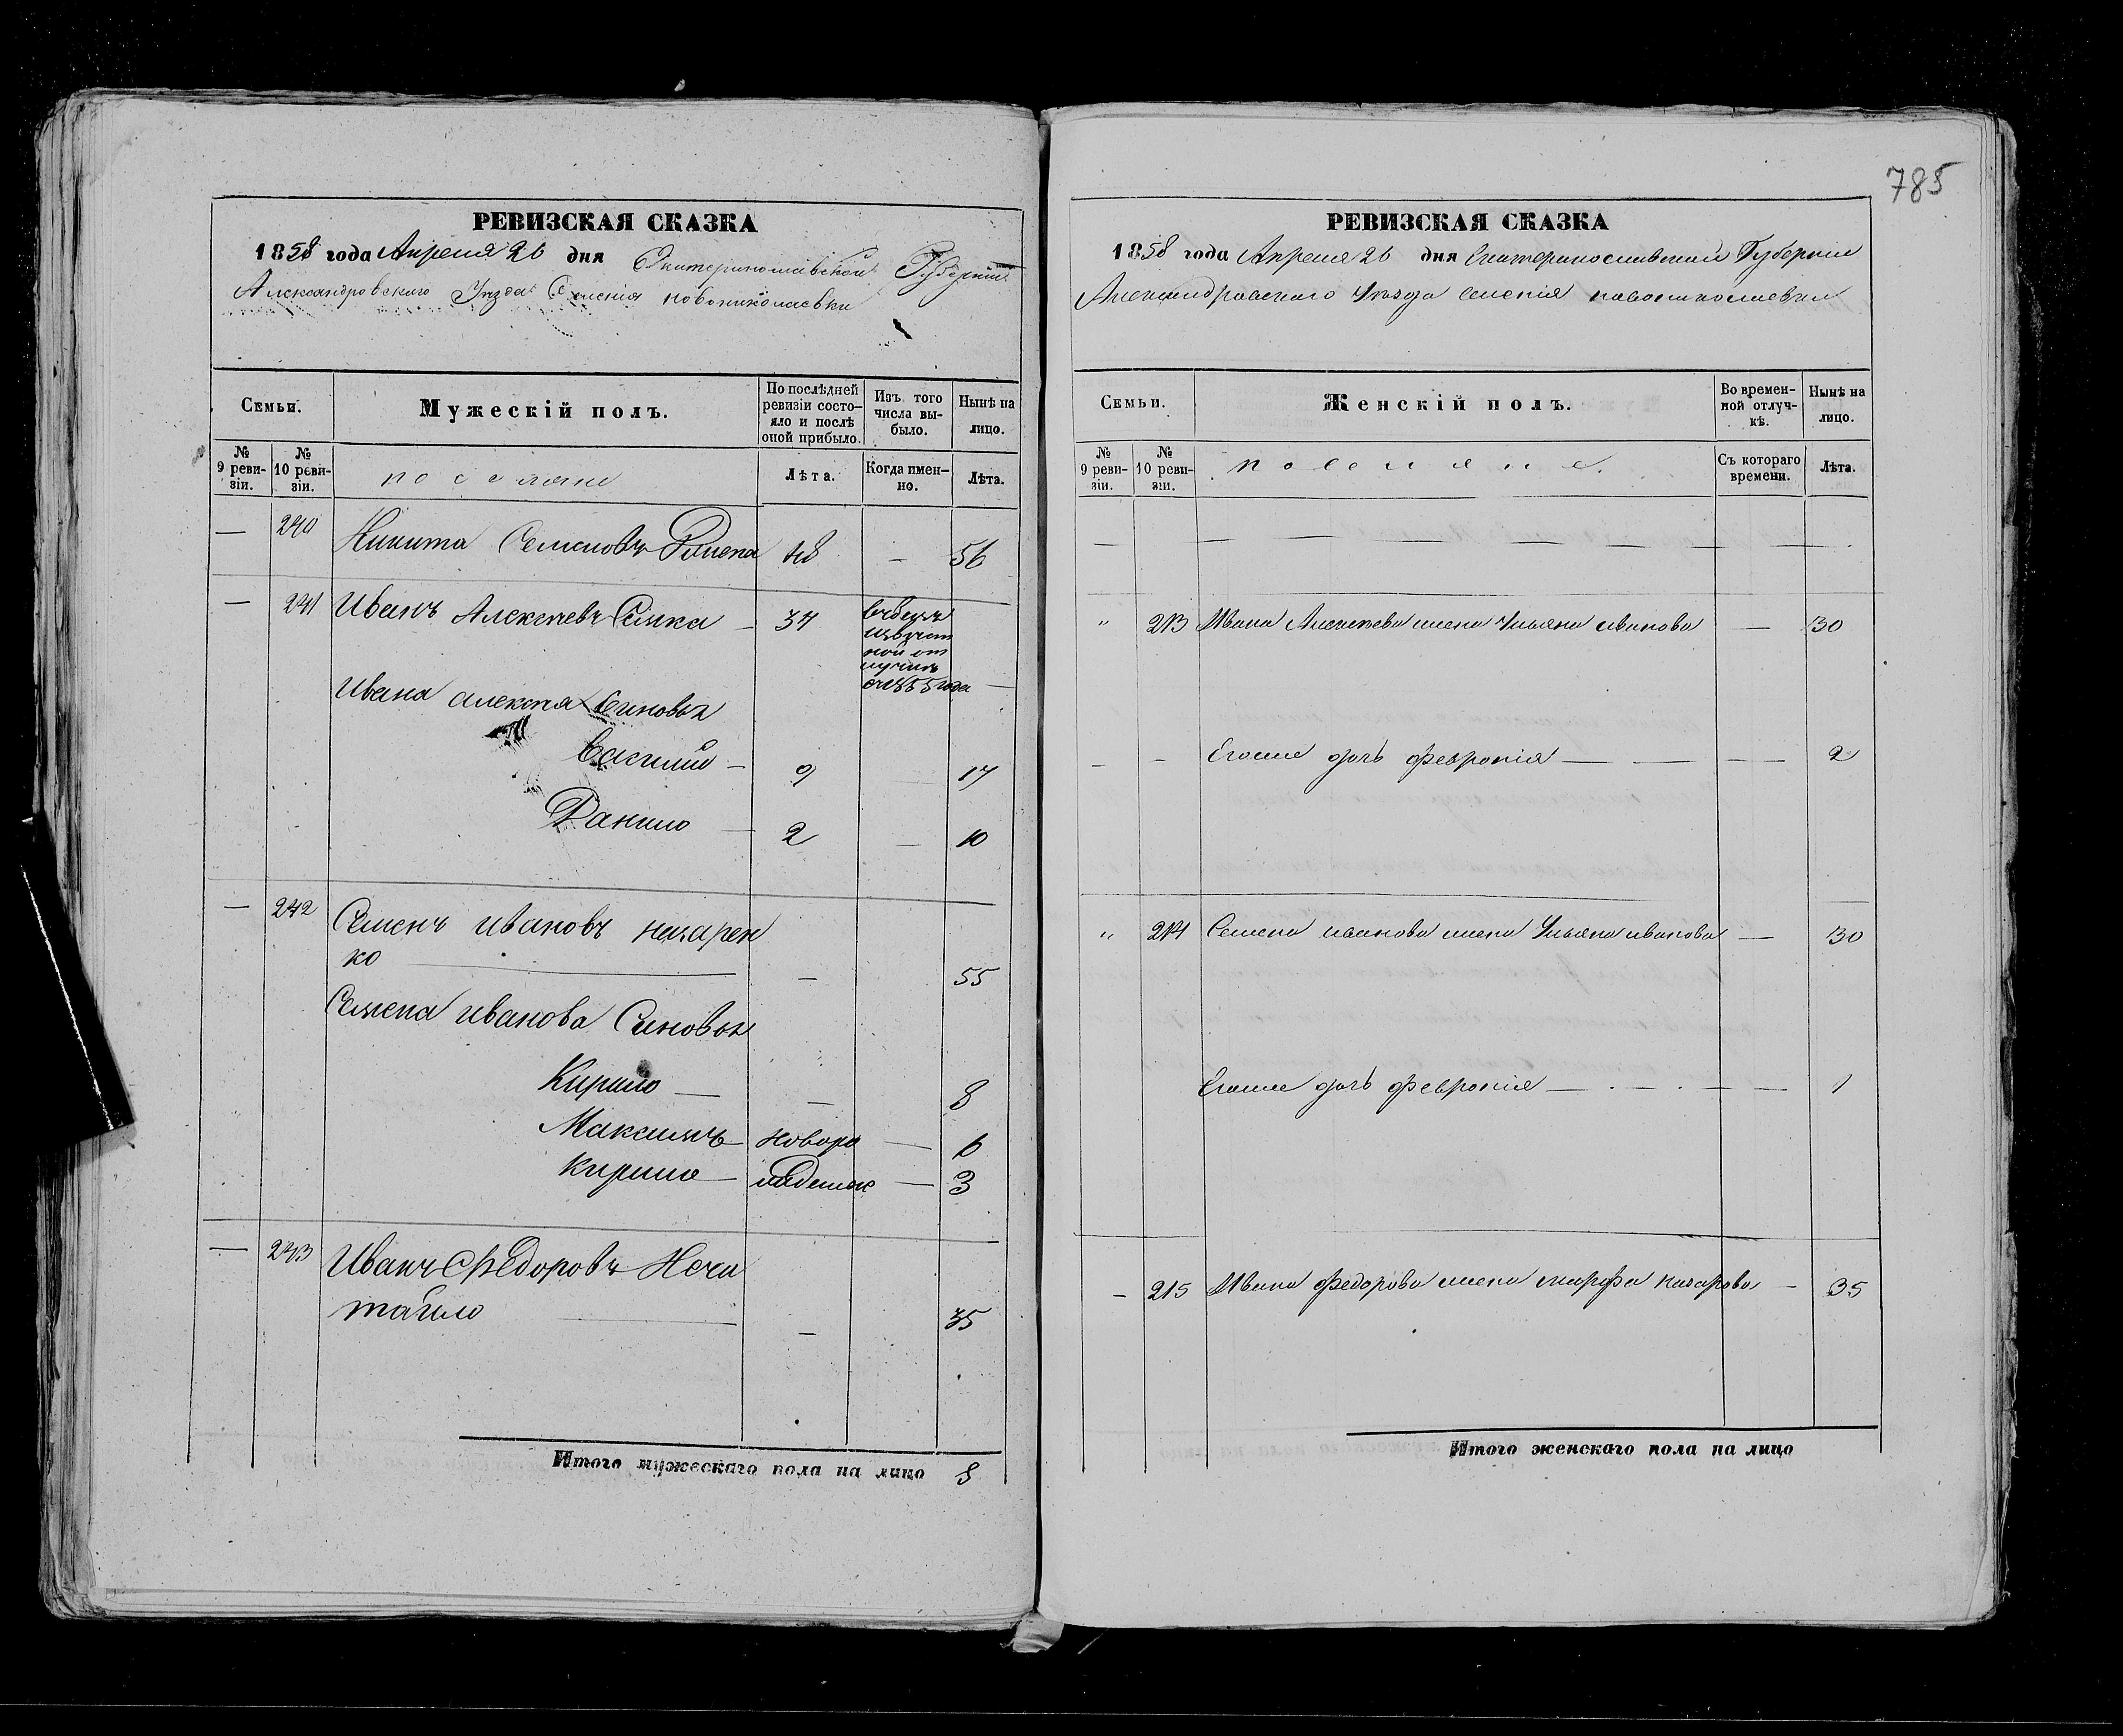 785
РЕВИЗСКАЯ СКАЗКА
1858 года Апреля 26 дня Екатеринославской Губерніи
Александровского Уезда Селенія Новониколаевки
Семьи.
Мужескій полъ.
По послѣдней ревизіи состояло и послѣ оной прибыло.
Изъ того числа выбыло.
Нынѣ на лицо.
№ 9 ревизіи.
№ 10 ревизіи.
поселяне
Лѣта.
Когда именно.
Лѣта.
— 240 Никита Семеновъ 48 — 56
— 241 Иванъ Алексеевъ 34
1855 года —
Ивана Алексея Синовья
9 — 17
Данило — 2 — 10
— 242 Семенъ Ивановъ Назарен
ко — 55
Семена Иванова Синовья
Кирило — — 8
Максимъ — новоро — 6
Кирило — — 3
— 243 Иванъ Федоровъ Нечи
тайло — 35
Итого мужескаго пола на лицо 8
РЕВИЗСКАЯ СКАЗКА
1858 года Апреля 26 дня Екатеринославской Губерніи
Александровского Уезда Селенія новониколаевки
Семьи.
Женскій полъ.
Во временной отлучкѣ.
Нынѣ на лицо.
№ 9 ревизіи.
№ 10 ревизіи.
поселяне.
Съ котораго времени.
Лѣта.
" 213 Ивана Алексеева жена Ульяна иванова — 30
- - Егоже дочь Февронія — — — — 2
" 214 Семена иванова жена Ульяна иванова — 30
Егоже дочь Февронія — 1
- 215 Ивана Федорова жена марфа назарова — 35
Итого женскаго пола на лицо